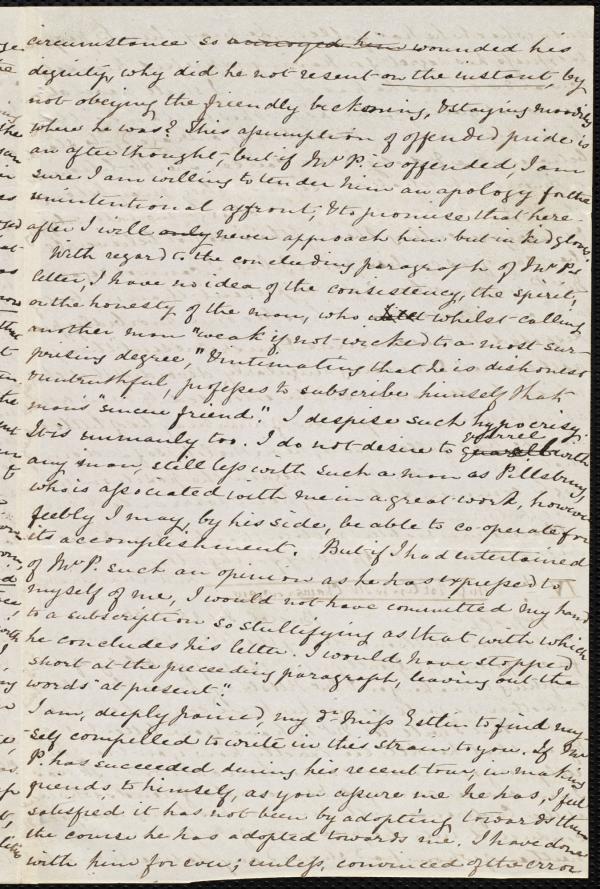 circumstance so annoyed him wounded his
dignity, why did he not resent on the instant, by
not obeying the friendly beckoning, & staying moodily
where he was? This assumption of offended pride is
an after thought; but if Mr P. is offended, I am
sure I am willing to tender him an apology for the
unintentional affront; & to promise that here
after I will only never approach him but in kid gloves.
With regard to the concluding paragraph of Mr P's
letter, I have no idea of the consistency, the spirit,
or the honesty of the man, who whilst calling
another man "weak if not wicked to a most sur-
prising degree," & intimating that he is dishonest
& untruthful, professes to subscribe himself that
man's "sincere friend." I despise such hypocrisy.
It is unmanly too. I do not desire to quarrel with
any man, still less with such a man as Pillsbury,
who is associated with me in a great work, however
feebly I may, by his side, be able to co-operate for
its accomplishment. But if I had entertained
of Mr P. such an opinion as he has expressed to
myself of me, I would not have committed my hand
to a subscription so stultifying as that with which
he concludes his letter. I would have stopped
short at the preceeding paragraph, leaving out the
words "at present".
I am, deeply pained, my dr Miss Estlin to find my-
self compelled to write in this strain to you. If Mr
P. has succeeded during his recent tour, in making
friends to himself, as you assure me he has, I feel
satisfied it has not been by adopting towards them
the course he has adopted towards me. I have done
with him for ever; unless, convinced of the error